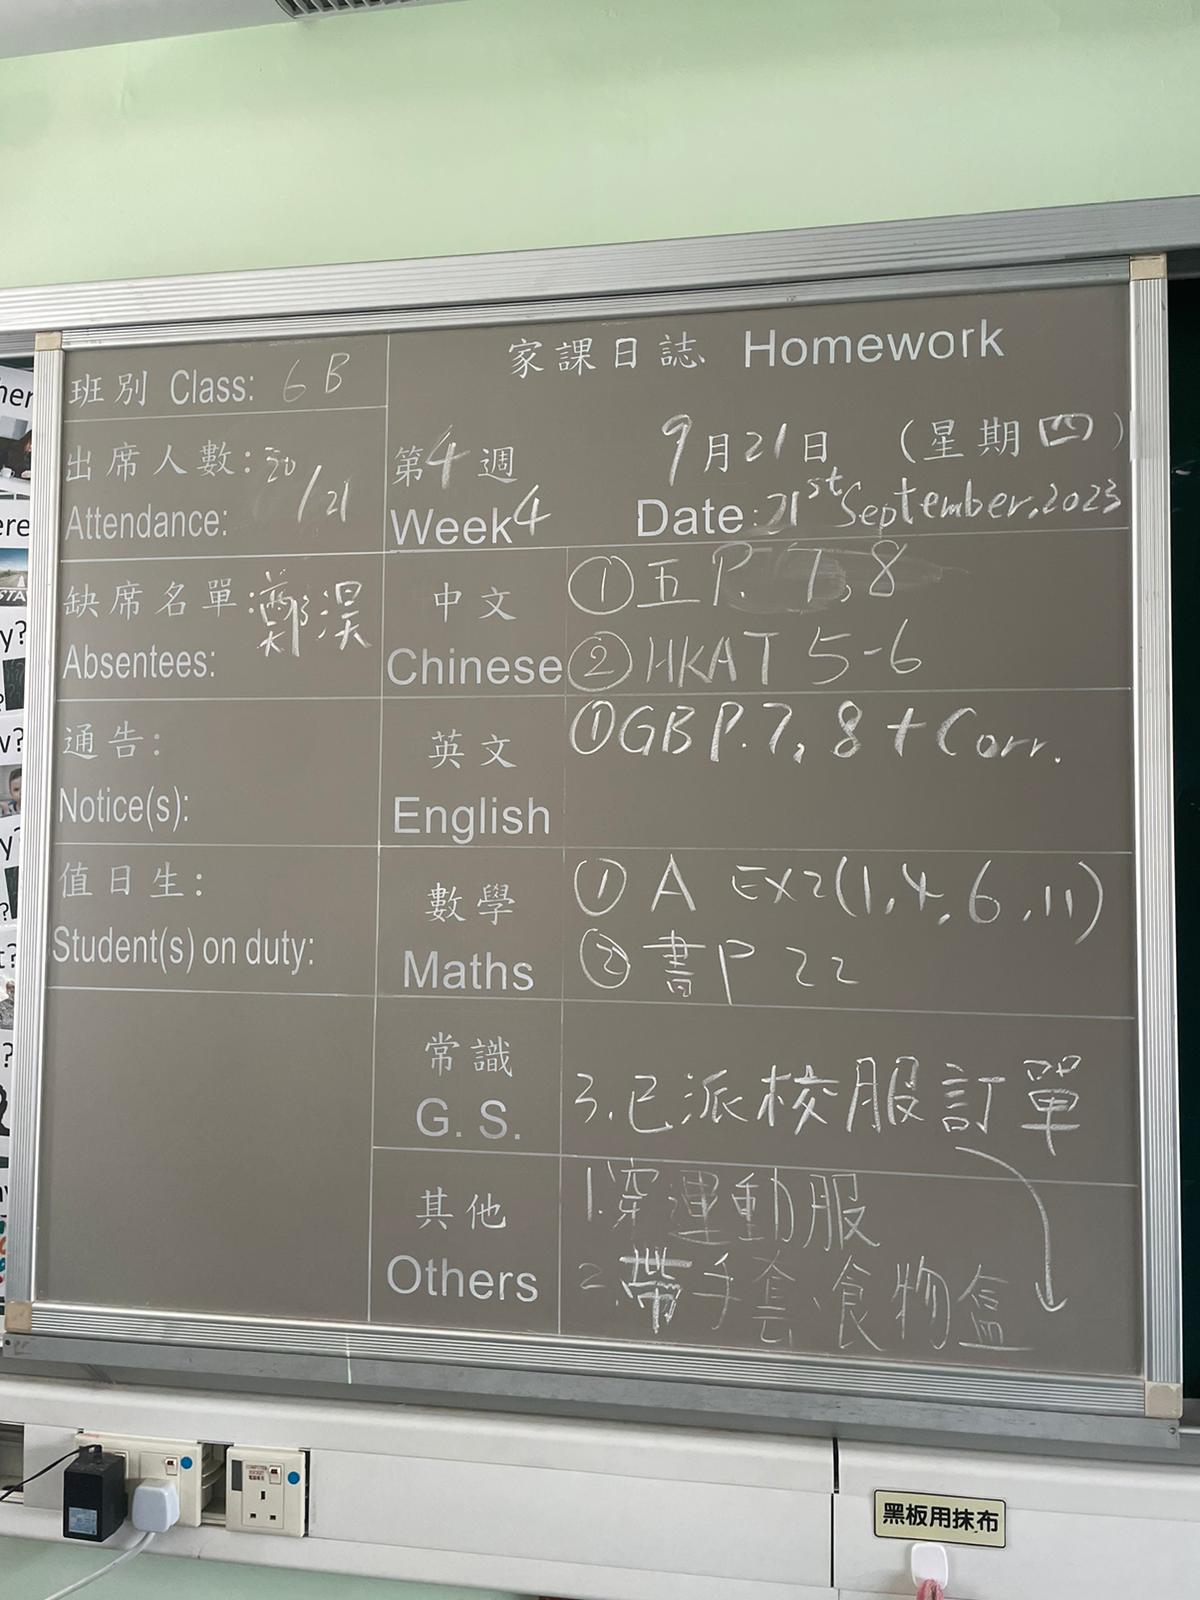 家課日誌 Homework
班別 Class: 6B
出席人數: 20/21
Attendance:
第4週 9月21日 (星期四)
Week 4 Date: 21st September, 2023
缺席名單: 鄭淏
Absentees:
中文
Chinese
①五 P. 7, 8
②HKAT 5-6
通告:
Notice(s):
英文
English
①GB P. 7, 8 + Corr.
值日生:
Student(s) on duty:
數學
Maths
① A EX2(1, 4, 6, 11)
② 書 P 22
常識
G. S.
3. 已派校服訂單
其他
Others
1. 穿運動服
2. 帶手套、食物盒
COMPUTER SOCKET
電腦專用
黑板用抹布